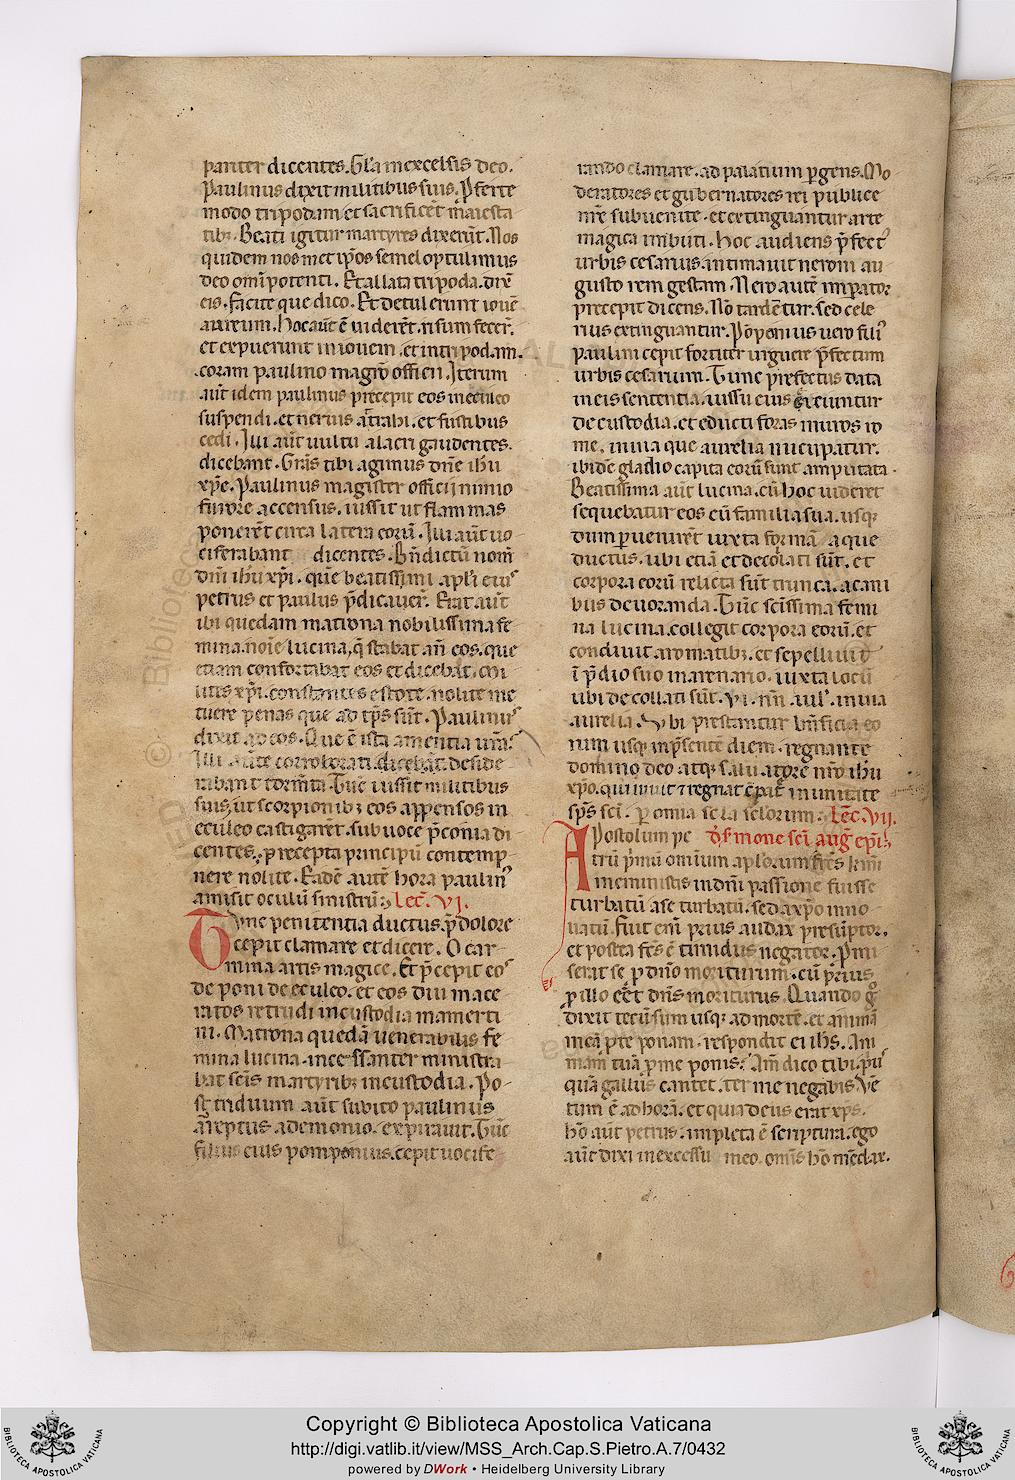 pariter dicentes. Gl'a in excelsis deo.
Paulinus dixit militibus suis. Pferte
modo tripodam et sacrificēt maiesta
tib;. Beati igitur martyres dixerūt. Nos
quidem nos met ip̄os semel optulimus
deo omīpotenti. Et allata tripoda. dix̄
eis. facite que dico. Et detulerunt iouē
aureum. hoc aūt ē uiderēt. risum fecer̄.
et expuerunt in iouem. et in tripodam.
coram paulino magrō officii. Iterum
aūt idem paulinus precepit eos in eculeo
suspendi. et neruis at̄rabi. et fustibus
cedi. Illi aūt uultu alacri gaudentes.
dicebant. Grās tibi agimus dn̄e ihu
xp̄e. Paulinus magister officii nimio
furore accensus. iussit ut flammas
ponerēt circa latera eorū. Illi aūt uo
ciferabant dicentes. Bn̄dictū nom̄
dn̄i ihu xp̄i. quē beatissimi ap̄li eius
petrus et paulus p̄dicauer̄. Erat aūt
ibi quedam matrona nobilissima fe
mina. noīe lucina, q̄ stabat an̄ eos. que
etiam confortabat eos et dicebat. mi
lites xp̄i. constantes estote. nolite me
tuere penas que ad tp̄s sūt. Paulinus
dixit ad eos. Que ē ista amentia ur̄a.
Illi aūte corroborati. dicebāt. deside
rabant torm̄ta. Tūc iussit militibus
suis, ut scorpionib; eos appensos in
eculeo castigarēt. sub uoce p̄conia di
centes. precepta principū contemp
nere nolite. Eadē autē hora paulinus
amisit oculū sinistrū. Lec̄. VI.
Tunc penitentia ductus. p̄ dolore
cepit clamare et dicere. O car
mina artis magice. Et p̄cepit eos
deponi de eculeo. et eos diu mace
ratos retrudi in custodia mamerti
ni. Matrona quedā uenerabilis fe
mina lucina. incessanter ministra
bat sc̄is martyrib; in custodia. Po
st triduum aūt subito paulinus
arreptus a demonio. expirauit. Tūc
filius eius pomponius. cepit uocife
rando clamare. ad palatium p̄gens. Mo
deratores et gubernatores rei publice
nr̄e subuenite. et extinguantur arte
magica imbuti. hoc audiens p̄fect'
urbis cesarius. intimauit neroni au
gusto rem gestam. Nero autē imp̄ator
precepit dicens. Nō tardētur. sed cele
rius extinguantur. Pōponius uero fili'
paulini cepit fortiter urguere p̄fectum
urbis cesarium. Tunc prefectus data
in eis sententia. iussu eius exeiuntur
de custodia. et educti foras muros ro
me. in uia que aurelia nūcupatur.
ibidē gladio capita eorū sunt amputata.
Beatissima aūt lucina. cū hoc uideret
sequebatur eos cū familia sua. usq;
dum puenirēt iuxta formā aque
ductus. ubi etiā et decolati sūt. et
corpora eorū relicta sūt trunca. a cani
bus deuoranda. Tūc sc̄issima femi
na lucina. collegit corpora eorū. et
condiuit aromatib;. et sepelliuit
ī p̄dio suo in arenario. iuxta locū
ubi decollati sūt. VI. nn̄. iul'. in uia
aurelia. Vbi prestantur bn̄ficia eo
rum usq; in p̄sentē diem. regnante
domino deo atq; saluatore nr̄o ihu
xp̄o. qui uiuit 7 regnat c̄ patr̄ in unitate
sp̄s sc̄i. p̄ omīa secla seclorum. Lec̄. VII.
Apostolum pe Ex s̄mone sc̄i aug̅ ep̄i.
trū p̄mū omnium ap̄lorum fr̄es km̄i
meministis in dn̄i passione fuisse
turbatū. a se turbatū. sed a xp̄o inno
uatū. Fuit enī prius audax presūptor.
et postea fr̄s ē timidus negator. Pmi
serat se p̄ dn̄o moriturum. cū prius
p̄ illo eēt dn̄s moriturus. Quando g̊
dixit tecū sum usq; ad mortē. et animā
meā p̄ te ponam. respondit ei ihs. Ani
mam tuā p̄ me ponis. Am̄ dico tibi. p̄us
quā gallus cantet. ter me negabis. Vē
tum ē ad horā. et quia deus erat xp̄s.
hō aūt petrus. impleta ē scriptura. ego
aūt dixi in excessu meo. omīs hō mēdax.
Copyright © Biblioteca Apostolica Vaticana
http://digi.vatlib.it/view/MSS_Arch.Cap.S.Pietro.A.7/0432
powered by DWork • Heidelberg University Library
BIBLIOTECA APOSTOLICA VATICANA
BIBLIOTECA APOSTOLICA VATICANA